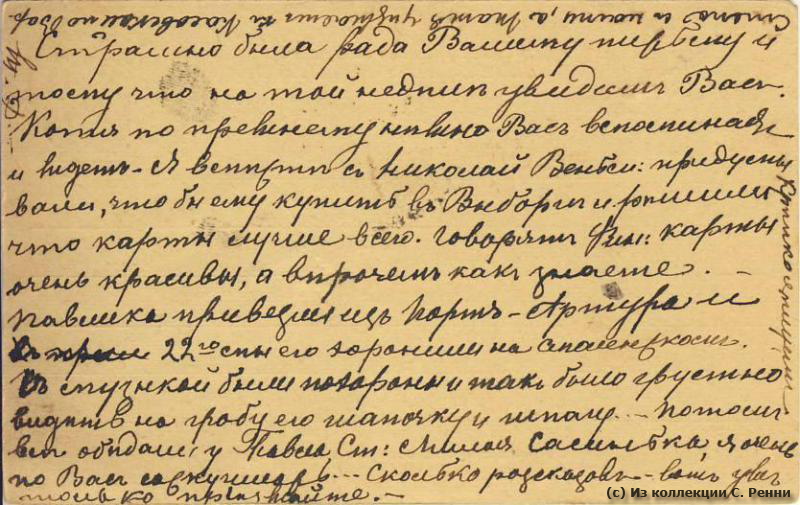 Страшно была рада Вашему письму и
тому что на той неделѣ увидимъ Васъ.
Котя по прежнему нѣжно Васъ вспоминаетъ
и видетъ. Я вмѣстѣ съ Николай Веньям: придумы
вали, что бы ему купить въ Выборгѣ и рѣшили
что карты лучше всего. Говорятъ Фин: карты
очень красивы, а впрочемъ какъ знаете. –
Павлика привезли изъ Портъ-Артура и
22го мы его хоронили на Смоленскомъ.
Съ музыкой были похороны и такъ было грустно
видеть на гробу его шапочку и шпагу... потомъ
всѣ обѣдали у Павла Ст: Милая Сашинька, я очень
по Васъ соскучилась... Сколько разсказовъ – вотъ уви
только пріезжайте. –
(c) Из коллекции С. Ренни